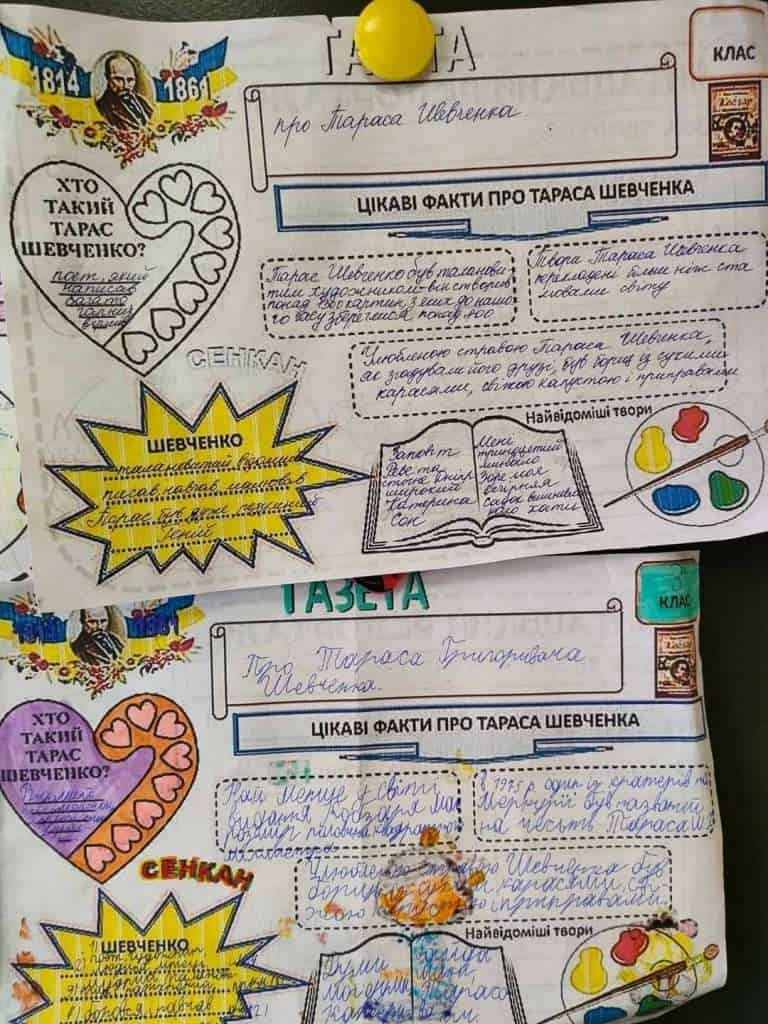 ГАЗЕТА
КЛАС
1814
1861
про Тараса Шевченка
Кобзар
ЦІКАВІ ФАКТИ ПРО ТАРАСА ШЕВЧЕНКА
ХТО
ТАКИЙ
ТАРАС
ШЕВЧЕНКО?
поет, який
написав
багато
гарних
Тарас Шевченко був талановитим
художником він створив
понад картин, з них до нашо
го часу збереглися понад
Твори Тараса Шевченка
перекладені більш ніж ста
мовами світу
Улюбленою стравою Тараса Шевченка,
як згадували його друзі, був борщ із сухими
карасями, свіжою капустою і приправами
СЕНКАН
ШЕВЧЕНКО
писав навчав малював
Тарас був дуже
Геній
Найвідоміші твори
Заповіт
Реве та
стогне Дніпр
широкий
Катерина
Сон
Мені
тринадцятий
минало
Зоре моя
вечірняя
Садок вишневий
коло хати
ГАЗЕТА
3
КЛАС
Про Тараса Григоровича
Шевченка.
ЦІКАВІ ФАКТИ ПРО ТАРАСА ШЕВЧЕНКА
ХТО
ТАКИЙ
ТАРАС
ШЕВЧЕНКО?
Най менше у світі
видання Кобзаря має
розмір
міліметра
В 1975 р. один із кратерів на
Меркурії був названий
на честь Тараса Ш
Улюбленою стравою Шевченка був
борщ із карасями, сві-
жою капустою і приправами.
СЕНКАН
ШЕВЧЕНКО
Найвідоміші твори
Думи
Могила
Катерина
Тараса